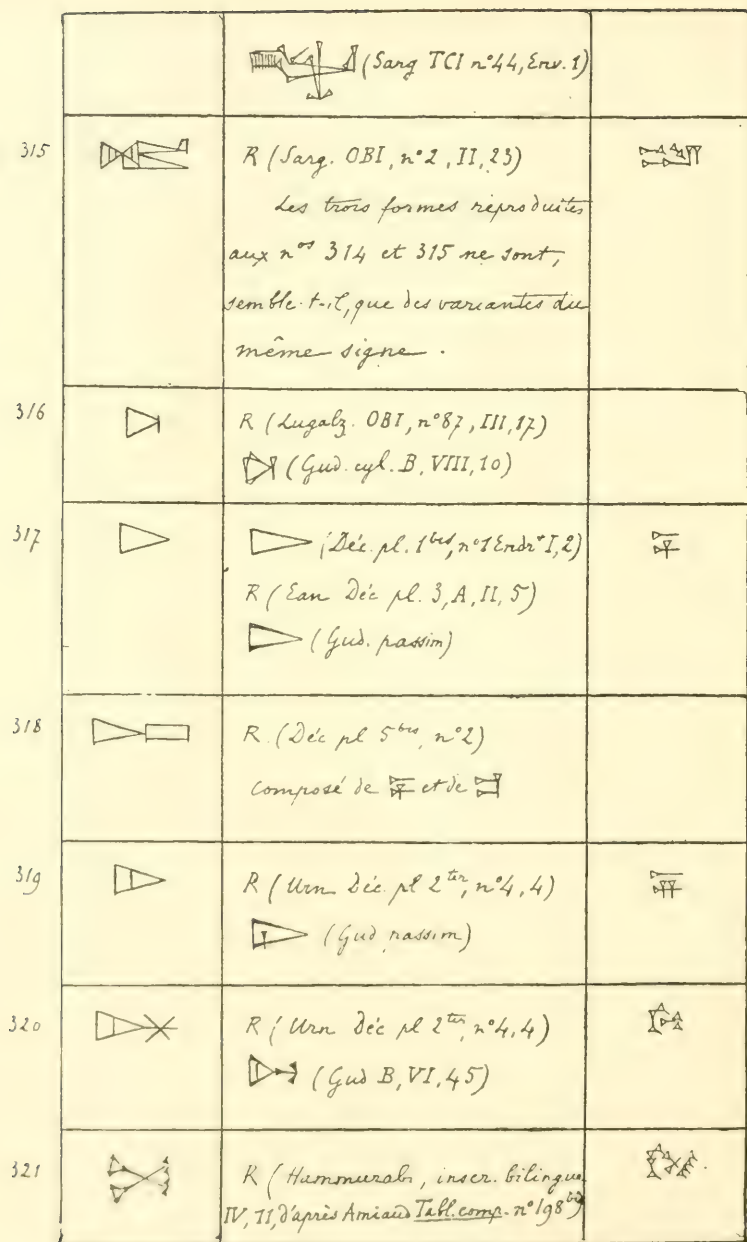 (Sarg TCI n° 44, Env. 1)
315 R (Sarg. OBI, n° 2, II, 23)
Les trois formes reproduites
aux nos 314 et 315 ne sont,
semble-t-il, que des variantes du
même signe.
316 R (Lugalz. OBI, n° 87, III, 17)
(Gud. cyl. B, VIII, 10)
317 (Déc. pl. 1 bis, n° 1 Endrt I, 2)
R (Ean Déc pl. 3, A, II, 5)
(Gud. passim)
318 R. (Déc pl 5 bis, n° 2)
composé de 𒊩 et de
319 R (Urn Déc. pl 2 ter, n° 4, 4)
(Gud passim)
320 R (Urn Déc pl 2 ter, n° 4, 4)
(Gud B, VI, 45)
321 R (Hammurabi, inscr. bilingue
IV, 11, d'après Amiaud Tabl. comp. n° 198 bis)